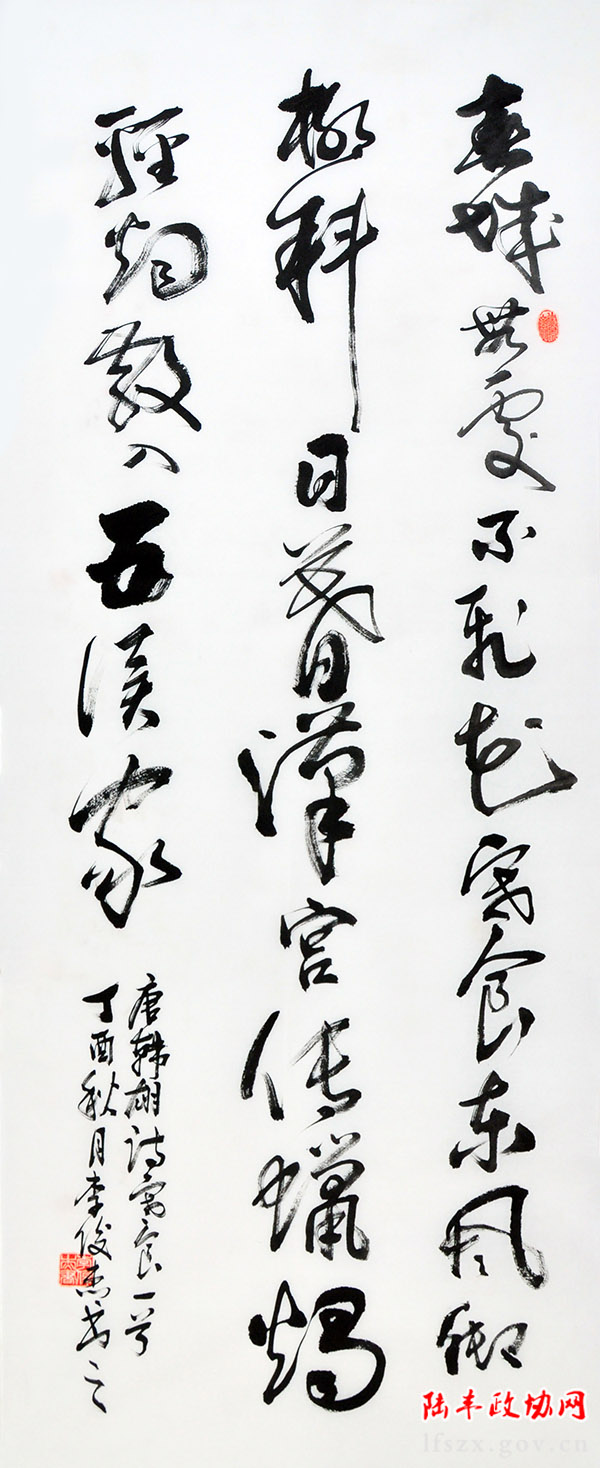 春城無處不飛花寒食东風御
柳斜日暮漢宮传蠟燭
輕烟散入五侯家
唐韩翃诗寒食一首
丁酉秋月李俊杰书之
陆丰政协网
lfszx.gov.cn